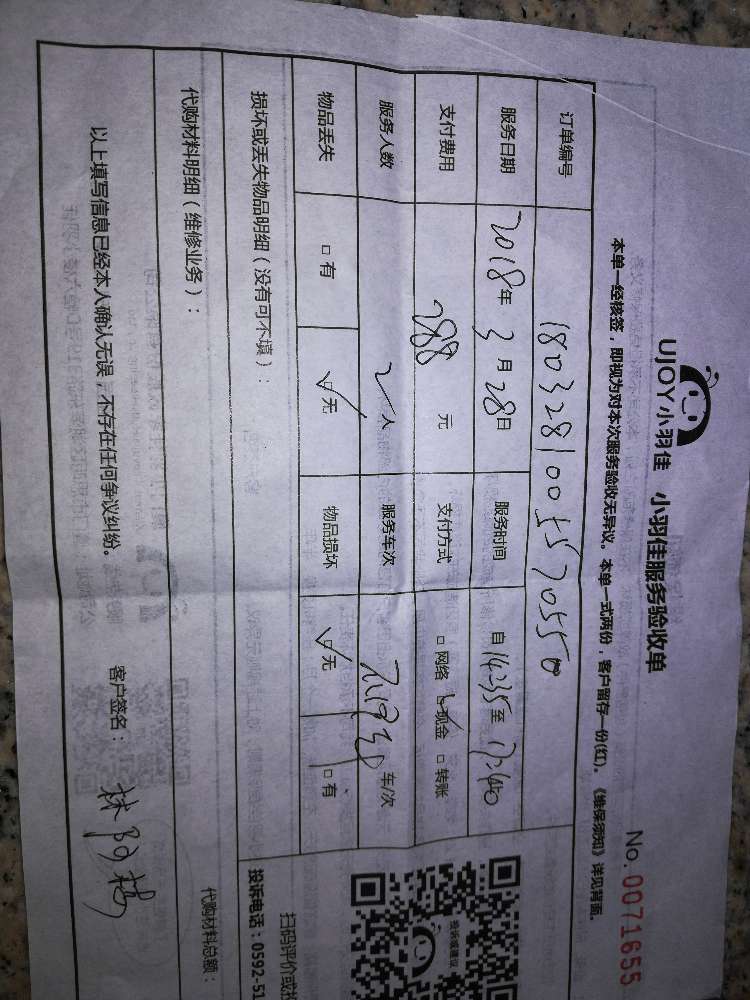 UJOY小羽佳 小羽佳服务验收单
No.0071655
本单一经核签，即视为对本次服务验收无异议。本单一式两份，客户留存一份(红)。《维保须知》详见背面。
订单编号 1803281005570550
服务日期 2018年3月28日 服务时间 自14:35至17:40
支付费用 288元 支付方式 □网络 ☑现金 □转账
服务人数 2人 服务车次 车/次
物品丢失 □有 ☑无 物品损坏 ☑无 □有
损坏或丢失物品明细（没有可不填）：
扫码评价或投
投诉建议
投诉电话：0592-51
代购材料明细（维修业务）：
代购材料总额：
以上填写信息已经本人确认无误，不存在任何争议纠纷。 客户签名：林阿梅